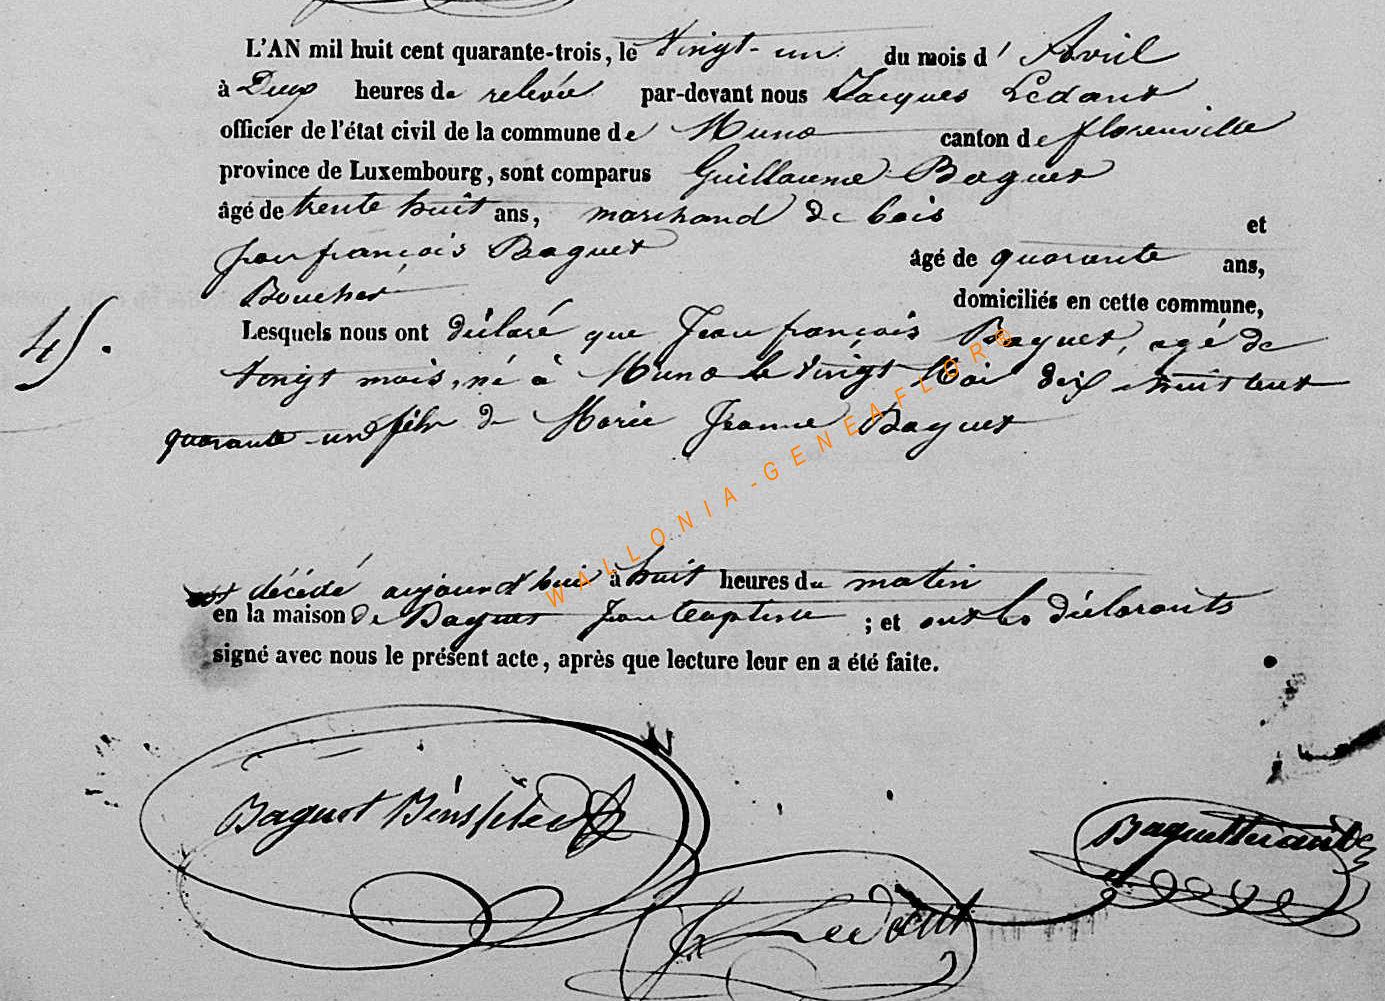 L'AN mil huit cent quarante-trois, le vingt-un du mois d' Avril
à Deux heures de relevée par-devant nous Jacques Ledant
officier de l'état civil de la commune de Muno canton de florenville
province de Luxembourg, sont comparus Guillaume Baguet
âgé de trente huit ans, marchand de bois et
Jean françois Baguet âgé de quarante ans,
Boucher domiciliés en cette commune,
45.
Lesquels nous ont déclaré que Jean françois Baguet, agé de
vingt mois, né à Muno le vingt Mai dix huit cent
quarante-un fils de Marie Jeanne Baguet
est décédé aujourd'hui à huit heures du matin
en la maison de Baguet Jean Baptiste ; et ont les déclarants
signé avec nous le présent acte, après que lecture leur en a été faite.
WALLONIA-GENEAFLOR®
Baguet
Baguet
J. Ledant